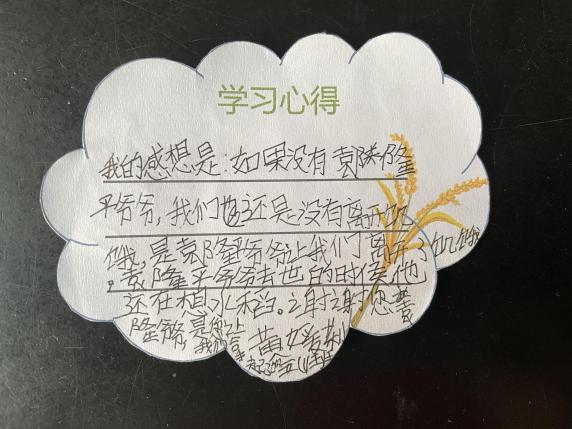 学习心得
我的感想是:如果没有袁隆
平爷爷,我们也还是没有离开饥
饿,是袁隆平爷爷让我们离开了饥饿
,袁隆平爷爷去世的时候他
还在想水稻。谢谢您袁
隆爷,是您让
我们
黄